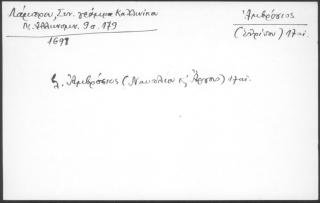 Λάμπρου, Συν. γράμμα Καλλινίκου
Ν. Ἑλληνομν. 9 σ. 179
1691
Ἀμβρόσιος
17 αἰ.
ζ. Ἀμβρόσιος (Ναυπλίου κ' Ἄργους) 17 αἰ.